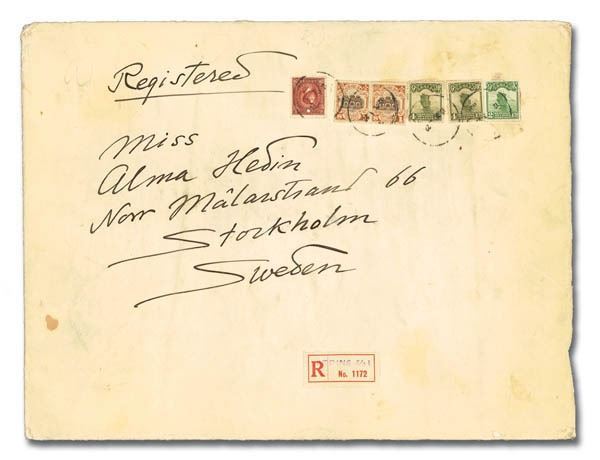 Registered
Miss
Alma Hedin
Norr Mälarstrand 66
Stockholm
Sweden
R
No. 1172